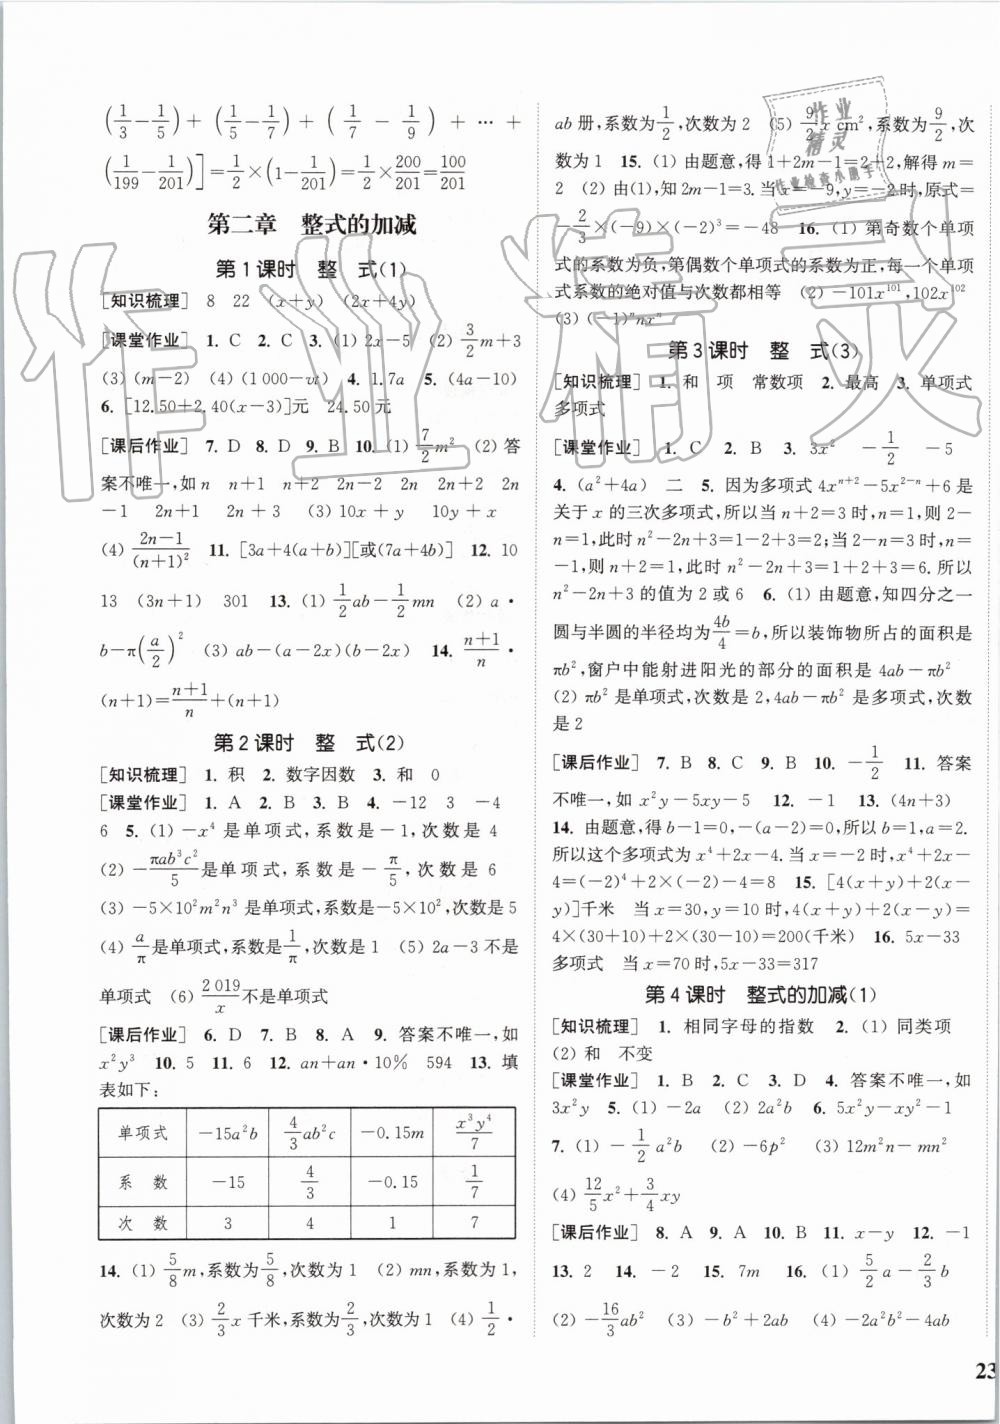 (1/3−1/5)+(1/5−1/7)+(1/7−1/9)+⋯+
(1/199−1/201)]=1/2×(1−1/201)=1/2×200/201=100/201
第二章　整式的加减
第1课时　整　式(1)
[知识梳理]　8　22　(x+y)　(2x+4y)
[课堂作业]　1. C　2. C　3. (1) 2x−5　(2) 3/2 m+3
(3) (m−2)　(4) (1 000−vt)　4. 1.7a　5. (4a−10)
6. [12.50+2.40(x−3)]元　24.50元
[课后作业]　7. D　8. D　9. B　10. (1) 7/2 m²　(2) 答
案不唯一,如 n　n+1　n+2　2n−2　2n　2n+2　2n
−1　2n+1　2n+3　(3) 10x+y　10y+x
(4) (2n−1)/(n+1)²　11. [3a+4(a+b)][或(7a+4b)]　12. 10
13　(3n+1)　301　13. (1) 1/2 ab−1/2 mn　(2) a·
b−π(a/2)²　(3) ab−(a−2x)(b−2x)　14. (n+1)/n·
(n+1)=(n+1)/n+(n+1)
第2课时　整　式(2)
[知识梳理]　1. 积　2. 数字因数　3. 和　0
[课堂作业]　1. A　2. B　3. B　4. −12　3　−4
6　5. (1) −x⁴ 是单项式,系数是−1,次数是 4
(2) −πab³c²/5 是单项式,系数是 −π/5,次数是 6
(3) −5×10²m²n³ 是单项式,系数是−5×10²,次数是5
(4) a/π 是单项式,系数是1/π,次数是1　(5) 2a−3不是
单项式　(6) 2 019/x 不是单项式
[课后作业]　6. D　7. B　8. A　9. 答案不唯一,如
x²y³　10. 5　11. 6　12. an+an·10%　594　13. 填
表如下:
单项式　−15a²b　4/3 ab²c　−0.15m　x³y⁴/7
系　数　−15　4/3　−0.15　1/7
次　数　3　4　1　7
14. (1) 5/8 m,系数为5/8,次数为1　(2) mn,系数为1,
次数为2　(3) 2/3 x千米,系数为2/3,次数为1　(4) 1/2·
ab册,系数为1/2,次数为2　(5) 9/2 x cm²,系数为9/2,次
数为1　15. (1) 由题意,得1+2m−1=2+2,解得m=
2　(2) 由(1),知2m−1=3.当x=−9,y=−2时,原式=
−2/3×(−9)×(−2)³=−48　16. (1) 第奇数个单项
式的系数为负,第偶数个单项式的系数为正,第n个单项
式系数的绝对值与次数都相等　(2) −101x¹⁰¹,102x¹⁰²
(3) (−1)ⁿnxⁿ
第3课时　整　式(3)
[知识梳理]　1. 和　项　常数项　2. 最高　3. 单项式
多项式
[课堂作业]　1. C　2. B　3. 3x²　−1/2　−5
4. (a²+4a)　二　5. 因为多项式4xⁿ⁺²−5x²⁻ⁿ+6是
关于x的三次多项式,所以当n+2=3时,n=1,则2−
n=1,此时n²−2n+3=1−2+3=2;当2−n=3时,n=
−1,则n+2=1,此时n²−2n+3=1+2+3=6.所以
n²−2n+3的值为2或6　6. (1) 由题意,知四分之一
圆与半圆的半径均为4b/4=b,所以装饰物所占的面积是
πb²,窗户中能射进阳光的部分的面积是4ab−πb²
(2) πb²是单项式,次数是2,4ab−πb²是多项式,次数
是2
[课后作业]　7. B　8. C　9. B　10. −1/2　11. 答案
不唯一,如x²y−5xy−5　12. −1　13. (4n+3)
14. 由题意,得b−1=0,−(a−2)=0,所以b=1,a=2.
所以这个多项式为x⁴+2x−4.当x=−2时,x⁴+2x−
4=(−2)⁴+2×(−2)−4=8　15. [4(x+y)+2(x−
y)]千米　当x=30,y=10时,4(x+y)+2(x−y)=
4×(30+10)+2×(30−10)=200(千米)　16. 5x−33
多项式　当x=70时,5x−33=317
第4课时　整式的加减(1)
[知识梳理]　1. 相同字母的指数　2. (1) 同类项
(2) 和　不变
[课堂作业]　1. B　2. C　3. D　4. 答案不唯一,如
3x²y　5. (1) −2a　(2) 2a²b　6. 5x²y−xy²−1
7. (1) −1/2 a²b　(2) −6p²　(3) 12m²n−mn²
(4) 12/5 x²+3/4 xy
[课后作业]　8. A　9. A　10. B　11. x−y　12. −1
13. 2　14. −2　15. 7m　16. (1) 5/2 a−2/3 b
(2) −16/3 ab²　(3) −b²+2ab　(4) −2a²b²−4ab
23
作业精灵
作业
精灵
作业检查小助手